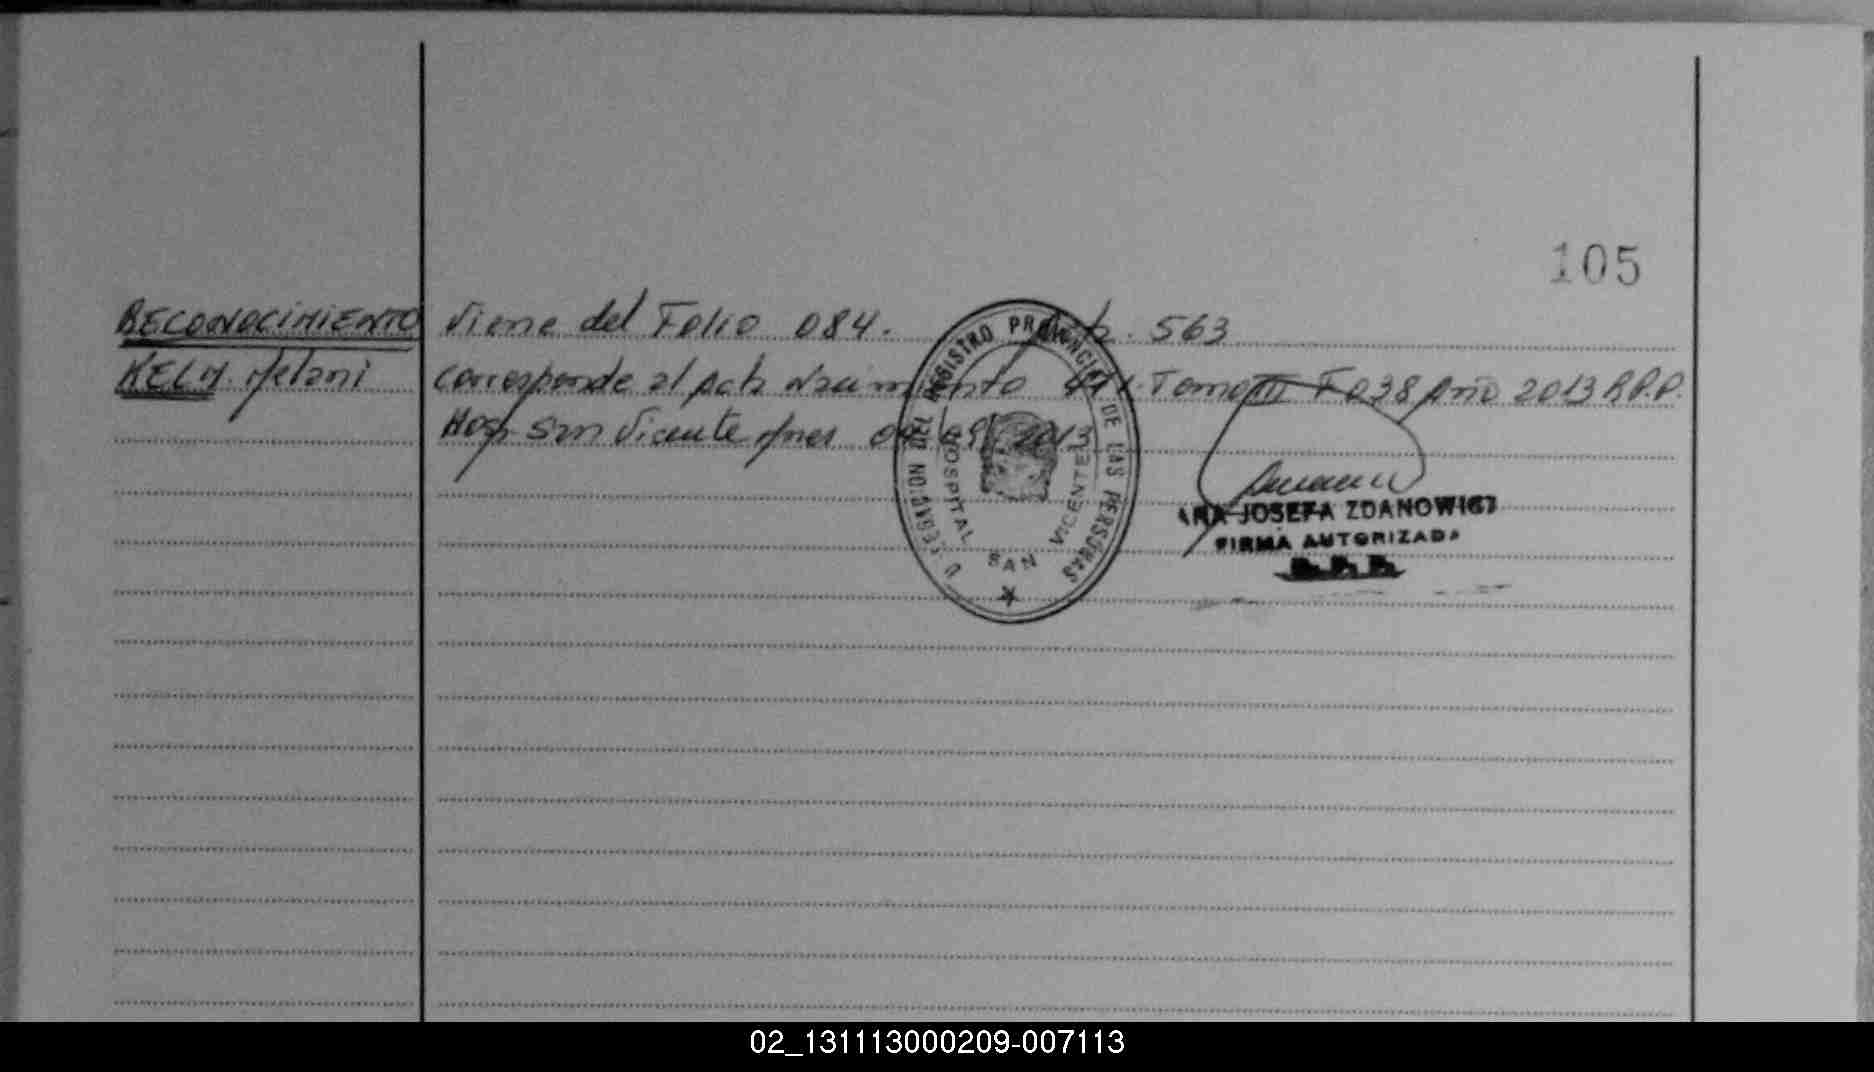 105
RECONOCIMIENTO Viene del Folio 084. Acta. 563
KELM. Melani Corresponde al Acta Nacimiento Tomo III F 038 Año 2013 R.P.P.
Hosp. San Vicente Mnes 2013
REGISTRO PROVINCIAL DE LAS PERSONAS
HOSPITAL SAN VICENTE
JOSEFA ZDANOWICZ
FIRMA AUTORIZADA
R. P. P.
02_131113000209-007113